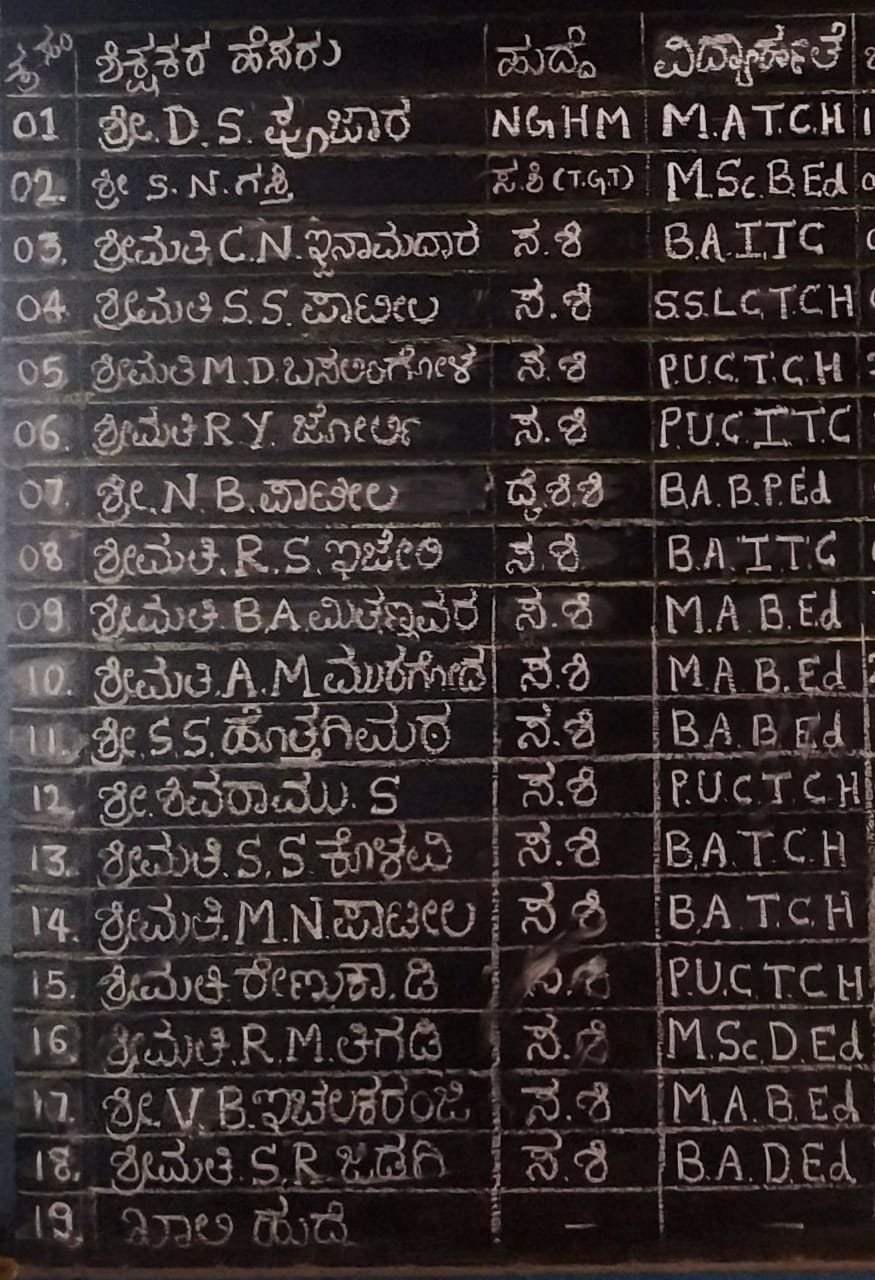 ಕ್ರ ಸಂ ಶಿಕ್ಷಕರ ಹೆಸರು ಹುದ್ದೆ ವಿದ್ಯಾರ್ಹತೆ
01 ಶ್ರೀ. D. S. ಪೂಜಾರ NGHM M.A T.C.H
02. ಶ್ರೀ S. N. ಗಸ್ತಿ ಸ.ಶಿ (T.G.T) M.Sc B.Ed
03. ಶ್ರೀಮತಿ C. N. ಇನಾಮದಾರ ಸ.ಶಿ B.A.ITC
04. ಶ್ರೀಮತಿ S. S. ಪಾಟೀಲ ಸ.ಶಿ S.S.L.C,T.C.H
05. ಶ್ರೀಮತಿ M. D. ಬಸಲಿಂಗೋಳ ಸ.ಶಿ P.U.C.T.C.H
06. ಶ್ರೀಮತಿ R Y. ಜೋರ್ಲಿ ಸ.ಶಿ P.U.C.I.T.C
07. ಶ್ರೀ. N B. ಪಾಟೀಲ ದೈ.ಶಿ.ಶಿ B.A. B.P.Ed
08 ಶ್ರೀಮತಿ. R. S. ಇಜೇರಿ ಸ.ಶಿ B.A. I.T.C
09. ಶ್ರೀಮತಿ. B.A. ಸ.ಶಿ M.A B.Ed
10. ಶ್ರೀಮತಿ. A. M ಮುರಗೋಡ ಸ.ಶಿ M.A B.Ed
11. ಶ್ರೀ. S. S. ಹೊತ್ತಗಿಮಠ ಸ.ಶಿ B.A. B Ed
12. ಶ್ರೀ. ಶಿವರಾಮು. S ಸ.ಶಿ P.U C T C H
13. ಶ್ರೀಮತಿ. S. S ಕೊಳವಿ ಸ.ಶಿ B.A. T.C.H
14. ಶ್ರೀಮತಿ. M. N. ಪಾಟೀಲ ಸ.ಶಿ B.A T.C.H
15. ಶ್ರೀಮತಿ ರೇಣುಕಾ. ಡಿ ಸ.ಶಿ P.U.C.T.C H
16. ಶ್ರೀಮತಿ. R. M. ತಿಗಡಿ ಸ.ಶಿ M.Sc.D.Ed
17. ಶ್ರೀ. V. B. ಇಚಲಕರಂಜಿ ಸ.ಶಿ M.A.B.Ed
18. ಶ್ರೀಮತಿ. S. R. ಜಡಗಿ ಸ.ಶಿ B.A.D.Ed
19. ಖಾಲಿ ಹುದೆ — —